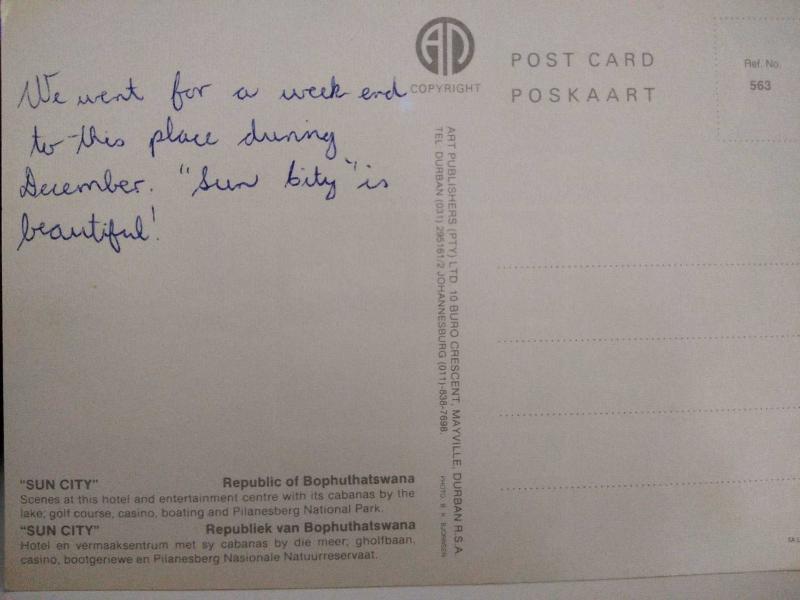 We went for a week end
to this place during
December. "Sun City" is
beautiful!
COPYRIGHT
POST CARD
POSKAART
Ref. No.
563
ART PUBLISHERS (PTY) LTD. 10 BURO CRESCENT, MAYVILLE, DURBAN R.S.A.
TEL. DURBAN (031) 295161/2 JOHANNESBURG (011)-838-7698.
"SUN CITY" Republic of Bophuthatswana
Scenes at this hotel and entertainment centre with its cabanas by the
lake; golf course, casino, boating and Pilanesberg National Park.
"SUN CITY" Republiek van Bophuthatswana
Hotel en vermaaksentrum met sy cabanas by die meer; gholfbaan,
casino, bootgeriewe en Pilanesberg Nasionale Natuurreservaat.